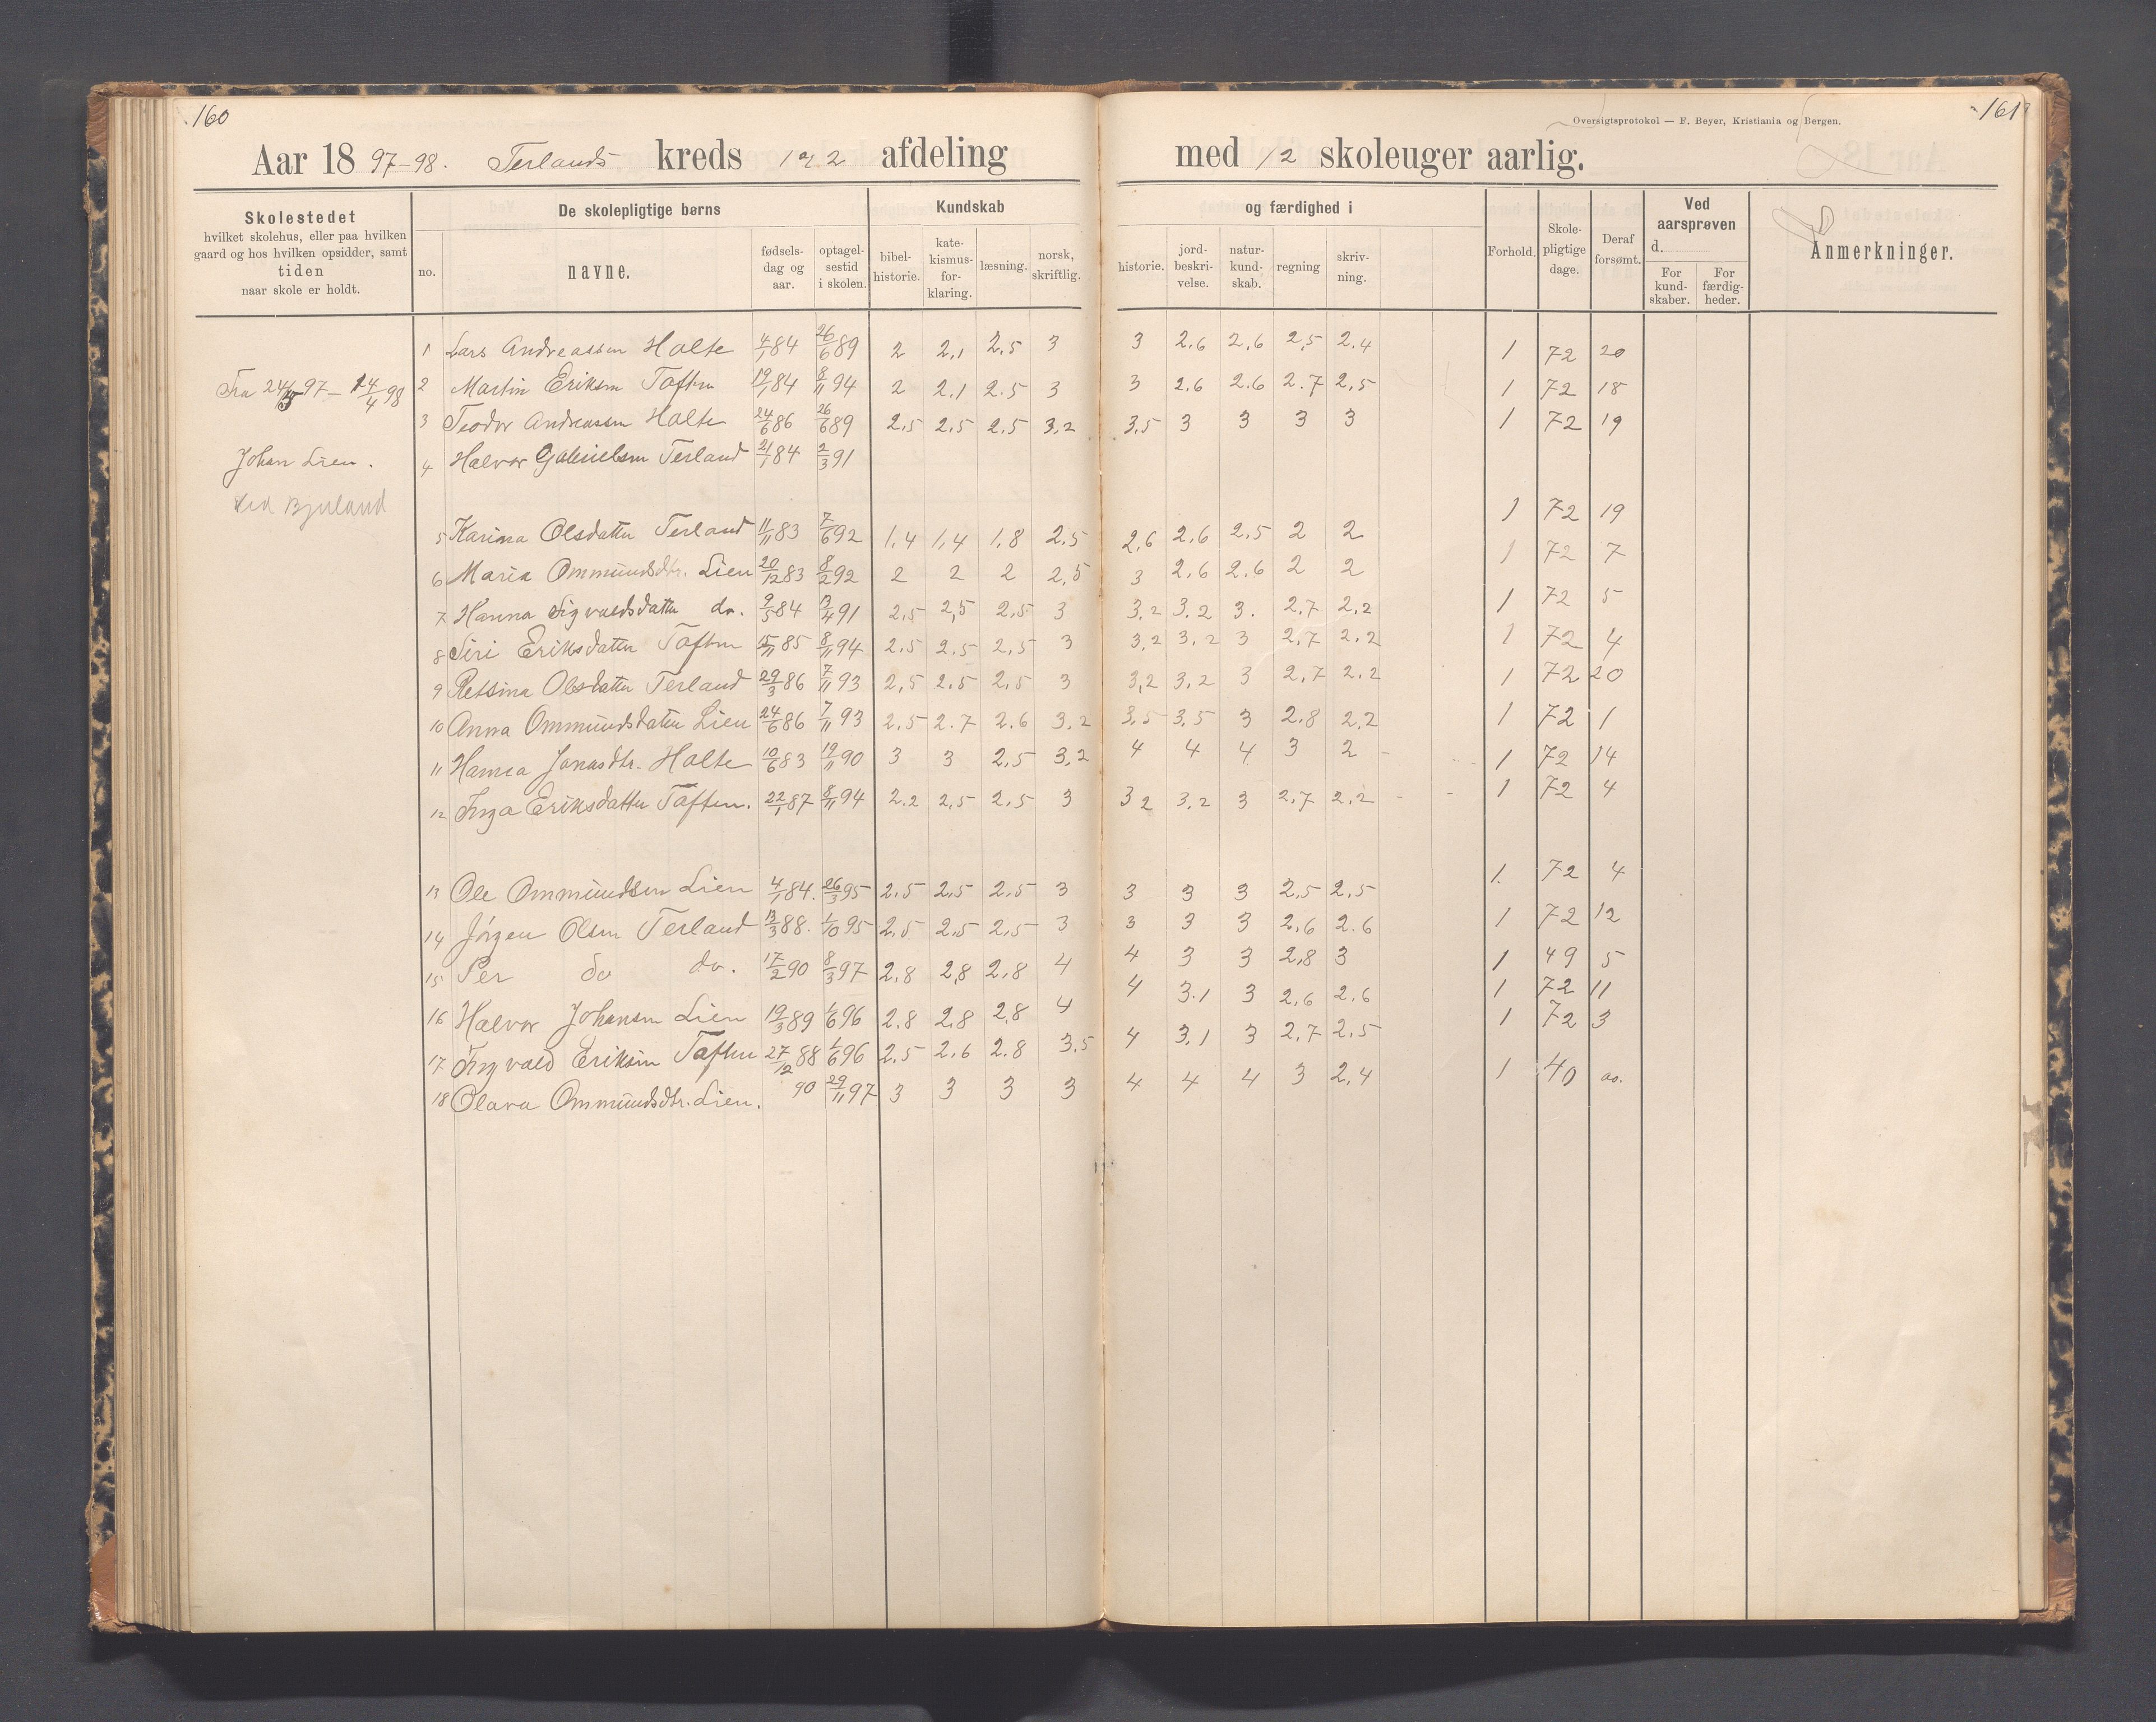 160
161
Oversigtsprotokol — F. Beyer, Kristiania og Bergen.
Aar 1897-98. Terlands kreds 1 & 2 afdeling med 12 skoleuger aarlig.
Skolestedet
hvilket skolehus, eller paa hvilken
gaard og hos hvilken opsidder, samt
tiden
naar skole er holdt.
De skolepligtige børns
no.
navne.
fødsels-
dag og
aar.
optagel-
sestid
i skolen.
Kundskab
bibel-
historie.
kate-
kismus-
for-
klaring.
læsning.
norsk,
skriftlig.
og færdighed i
historie.
jord-
beskri-
velse.
natur-
kund-
skab.
regning
skriv-
ning.
Forhold.
Skole-
pligtige
dage.
Deraf
forsømt.
Ved
aarsprøven
d.
For
kund-
skaber.
For
færdig-
heder.
Anmerkninger.
Fra 24/3 97 - 14/4 98
Johan Lien.
1 Lars Andreassen Holte 4/1 84 26/6 89 2 2,1 2,5 3 3 2.6 2,6 2,5 2.4 1 72 20
2 Martin Eriksen Toften 19/1 84 8/11 94 2 2,1 2.5 3 3 2.6 2.6 2.7 2,5 1 72 18
3 Teodor Andreassen Holte 24/6 86 26/6 89 2,5 2,5 2,5 3,2 3,5 3 3 3 3 1 72 19
4 Halvor Gabrielsen Terland 21/1 84 2/3 91
1 72 19
5 Karina Olsdatter Terland 11/11 83 7/6 92 1,4 1,4 1,8 2,5 2,6 2,6 2,5 2 2
1 72 7
6 Maria Ommundsdtr. Lien 20/12 83 8/2 92 2 2 2 2,5 3 2.6 2.6 2 2
1 72 5
7 Hanna Sigvaldsdatter do. 9/5 84 13/4 91 2,5 2,5 2,5 3 3,2 3.2 3. 2.7 2,2
1 72 4
8 Siri Eriksdatter Toften 15/11 85 8/11 94 2.5 2.5 2,5 3 3,2 3,2 3 2,7 2.2
1 72 20
9 Retsina Olsdatter Terland 29/3 86 7/11 93 2,5 2.5 2,5 3 3,2 3,2 3 2,7 2.2
1 72 1
10 Anna Ommundsdatter Lien 24/6 86 7/11 93 2.5 2.7 2.6 3,2 3,5 3.5 3 2.8 2,2
1 72 14
11 Hanna Jonasdtr. Holte 10/6 83 19/11 90 3 3 2,5 3,2 4 4 4 3 2 -
1 72 4
12 Inga Eriksdatter Toften. 22/1 87 8/11 94 2.2 2,5 2.5 3 3 2 3,2 3 2,7 2,2 - -
1. 72 4
13 Ole Ommundsen Lien 4/1 84. 26/3 95 2,5 2,5 2,5 3 3 3 3 2,5 2,5
1 72 12
14 Jørgen Olsen Terland 13/3 88. 1/10 95 2,5 2,5 2,5 3 3 3 3 2,6 2.6
1 49 5
15 Per do do. 17/2 90 8/3 97 2,8 2,8 2,8 4 4 3 3 2,8 3
1 72 11
16 Halvor Johansen Lien 19/3 89 1/6 96 2,8 2,8 2,8 4 4 3.1 3 2,6 2.6
1 72 3
17 Ingvald Eriksen Toften 27/12 88 1/6 96 2,5 2,6 2.8 3.5 4 3,1 3 2,7 2,5
1 40
18 Olava Ommundsdtr. Lien. 90 29/11 97 3 3 3 3 4 4 4 3 2,4